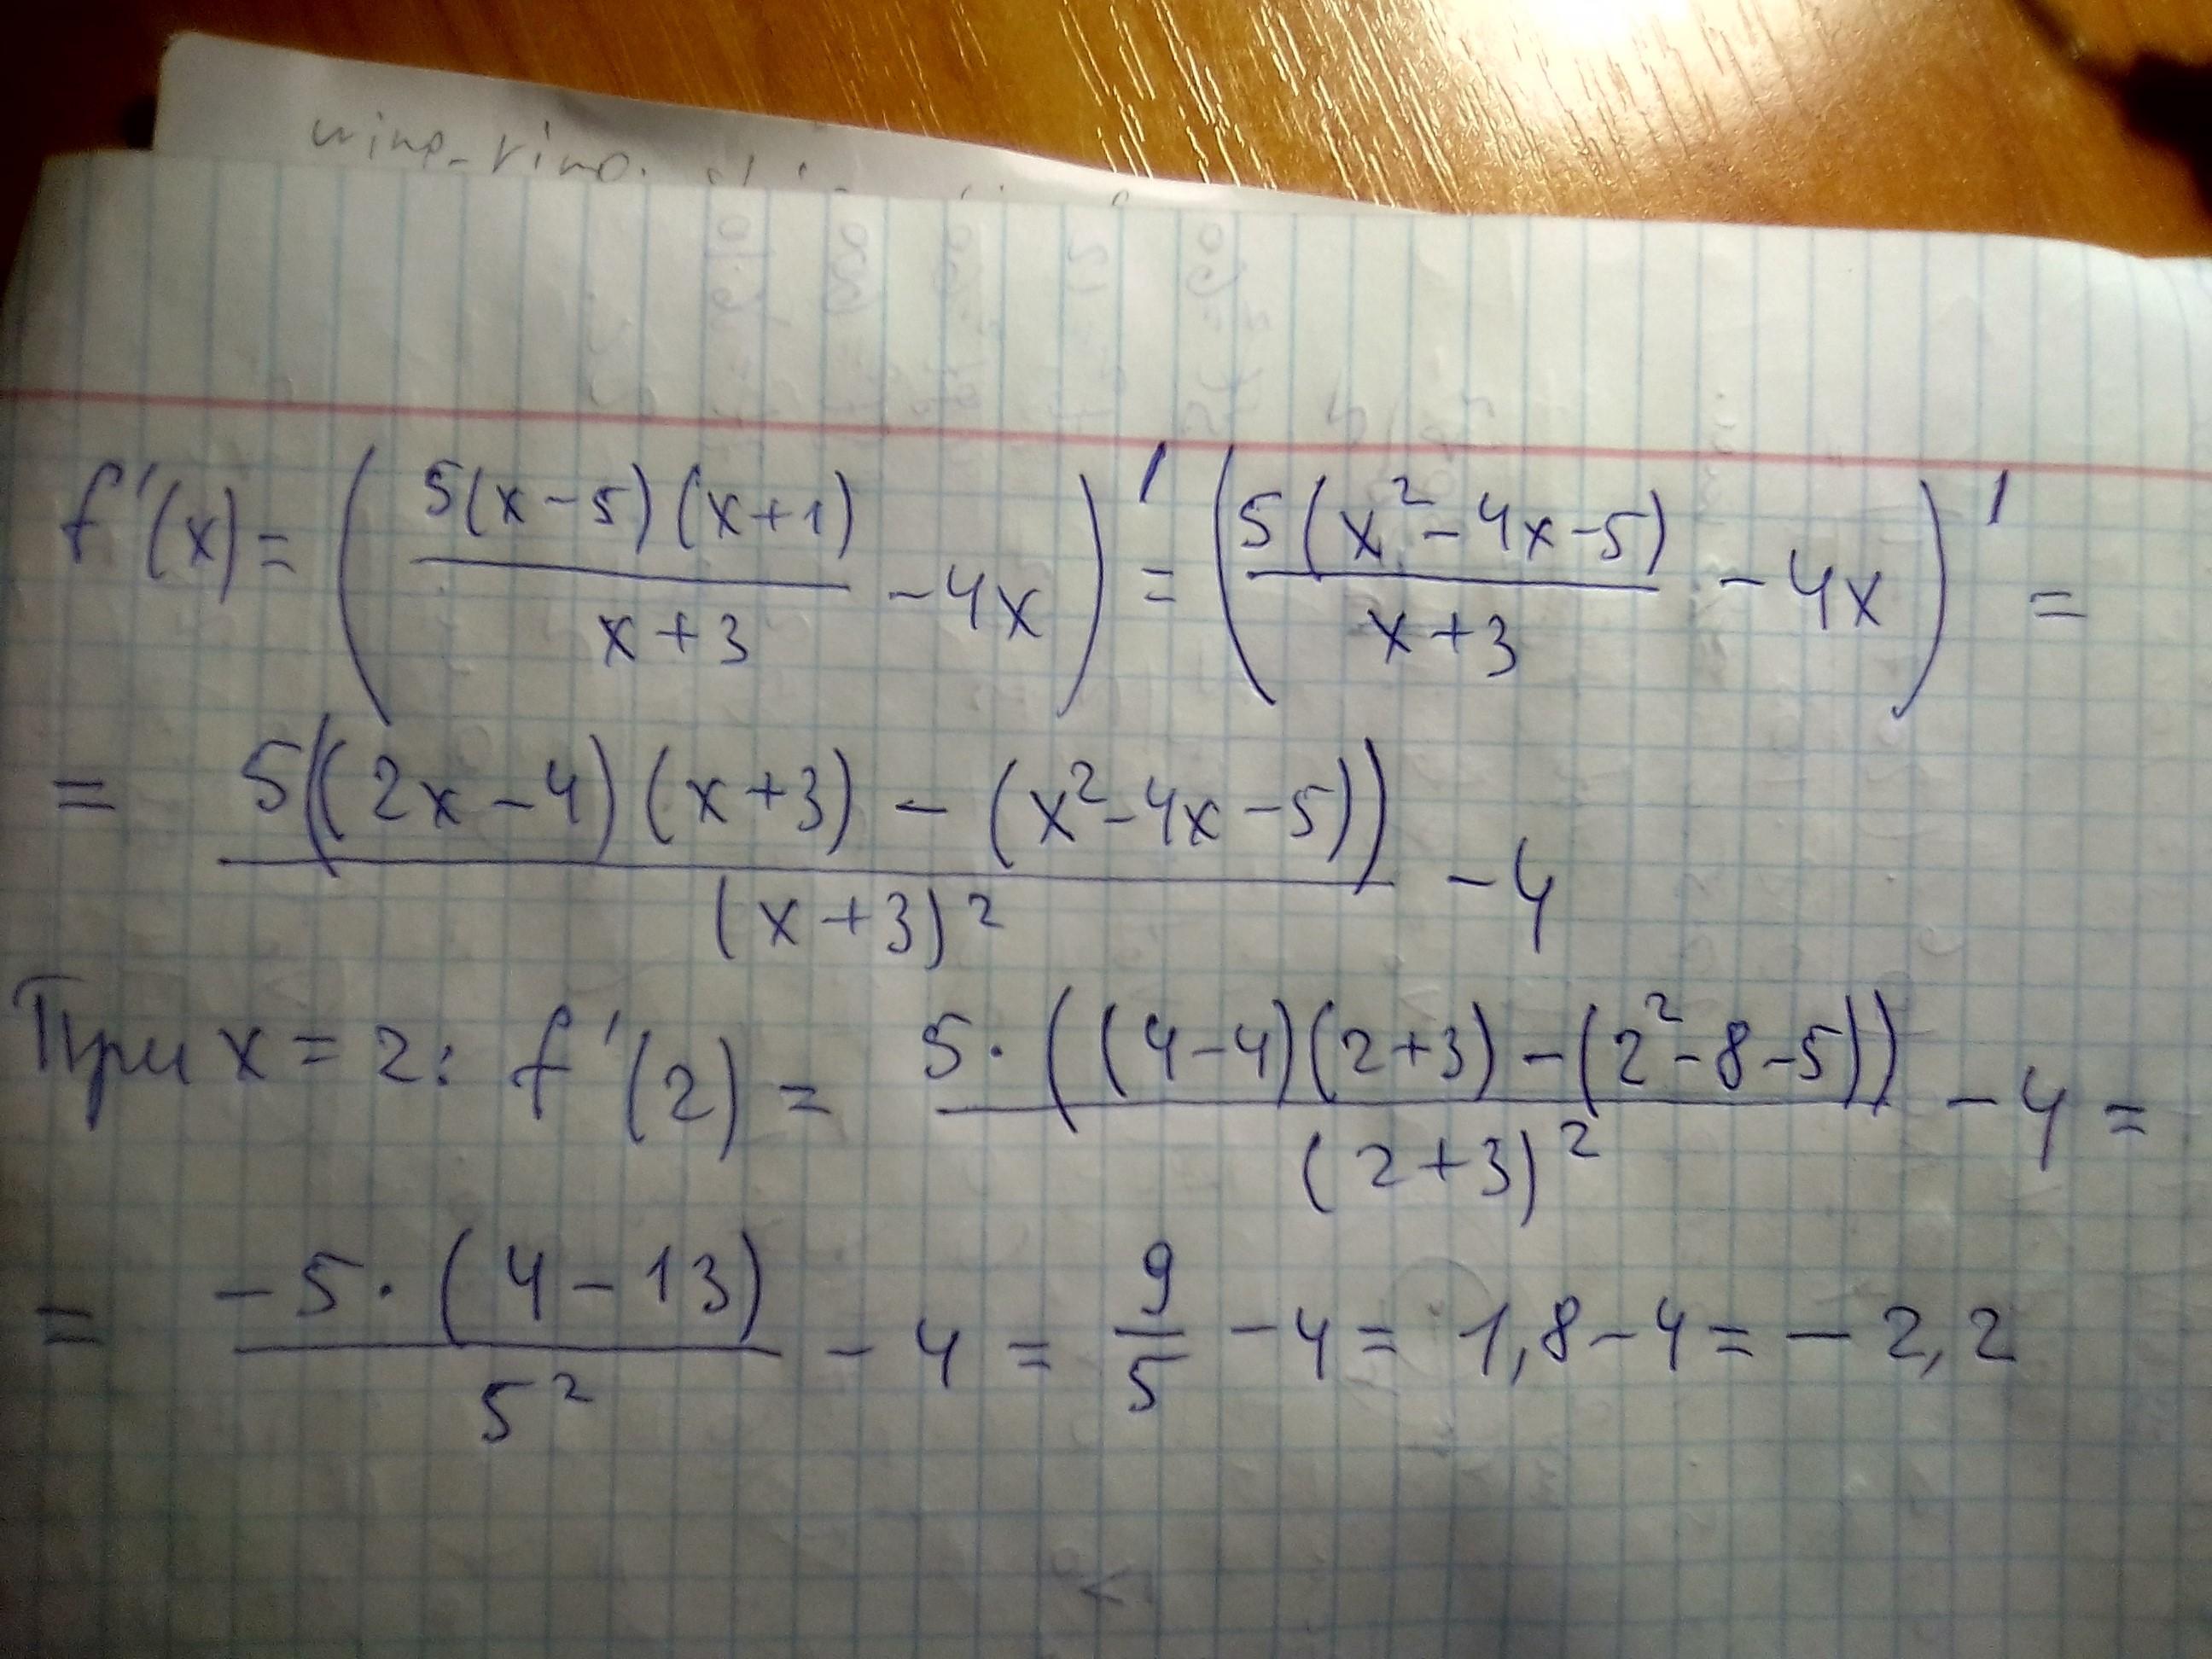 f'(x) = (5(x-5)(x+1)/(x+3) - 4x)' = (5(x²-4x-5)/(x+3) - 4x)' =
= 5((2x-4)(x+3) - (x²-4x-5))/(x+3)² - 4
При x = 2: f'(2) = 5·((4-4)(2+3) - (2²-8-5))/(2+3)² - 4 =
= -5·(4-13)/5² - 4 = 9/5 - 4 = 1,8 - 4 = -2,2